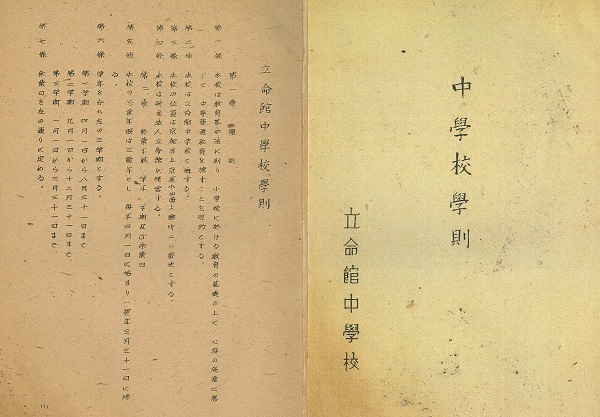 中學校學則
立命館中學校
立命館中學校學則
第一章 總則
第一條 本校は教育基本法に則り 小學校に於ける教育の基礎の上に 心身の発達に應
じて 中等普通教育を施すことを目的とする。
第二條 本校は立命館中學校と称する。
第三條 本校の位置は京都市上京區小山上總町二二番地とする。
第四條 本校は財団法人立命館が経営する。
第二章 修業年限 學年 學期及び休業日
第五條 本校の修業年限は三箇年とし 毎年四月一日に始まり 翌年三月三十一日に終
る。
第六條 學年を分ち左の三學期とする。
第一學期 四月一日から八月三十一日まで
第二學期 九月一日から十二月三十一日まで
第三學期 一月一日から三月三十一日まで
第七條 休業日を左の通りに定める。
(1)